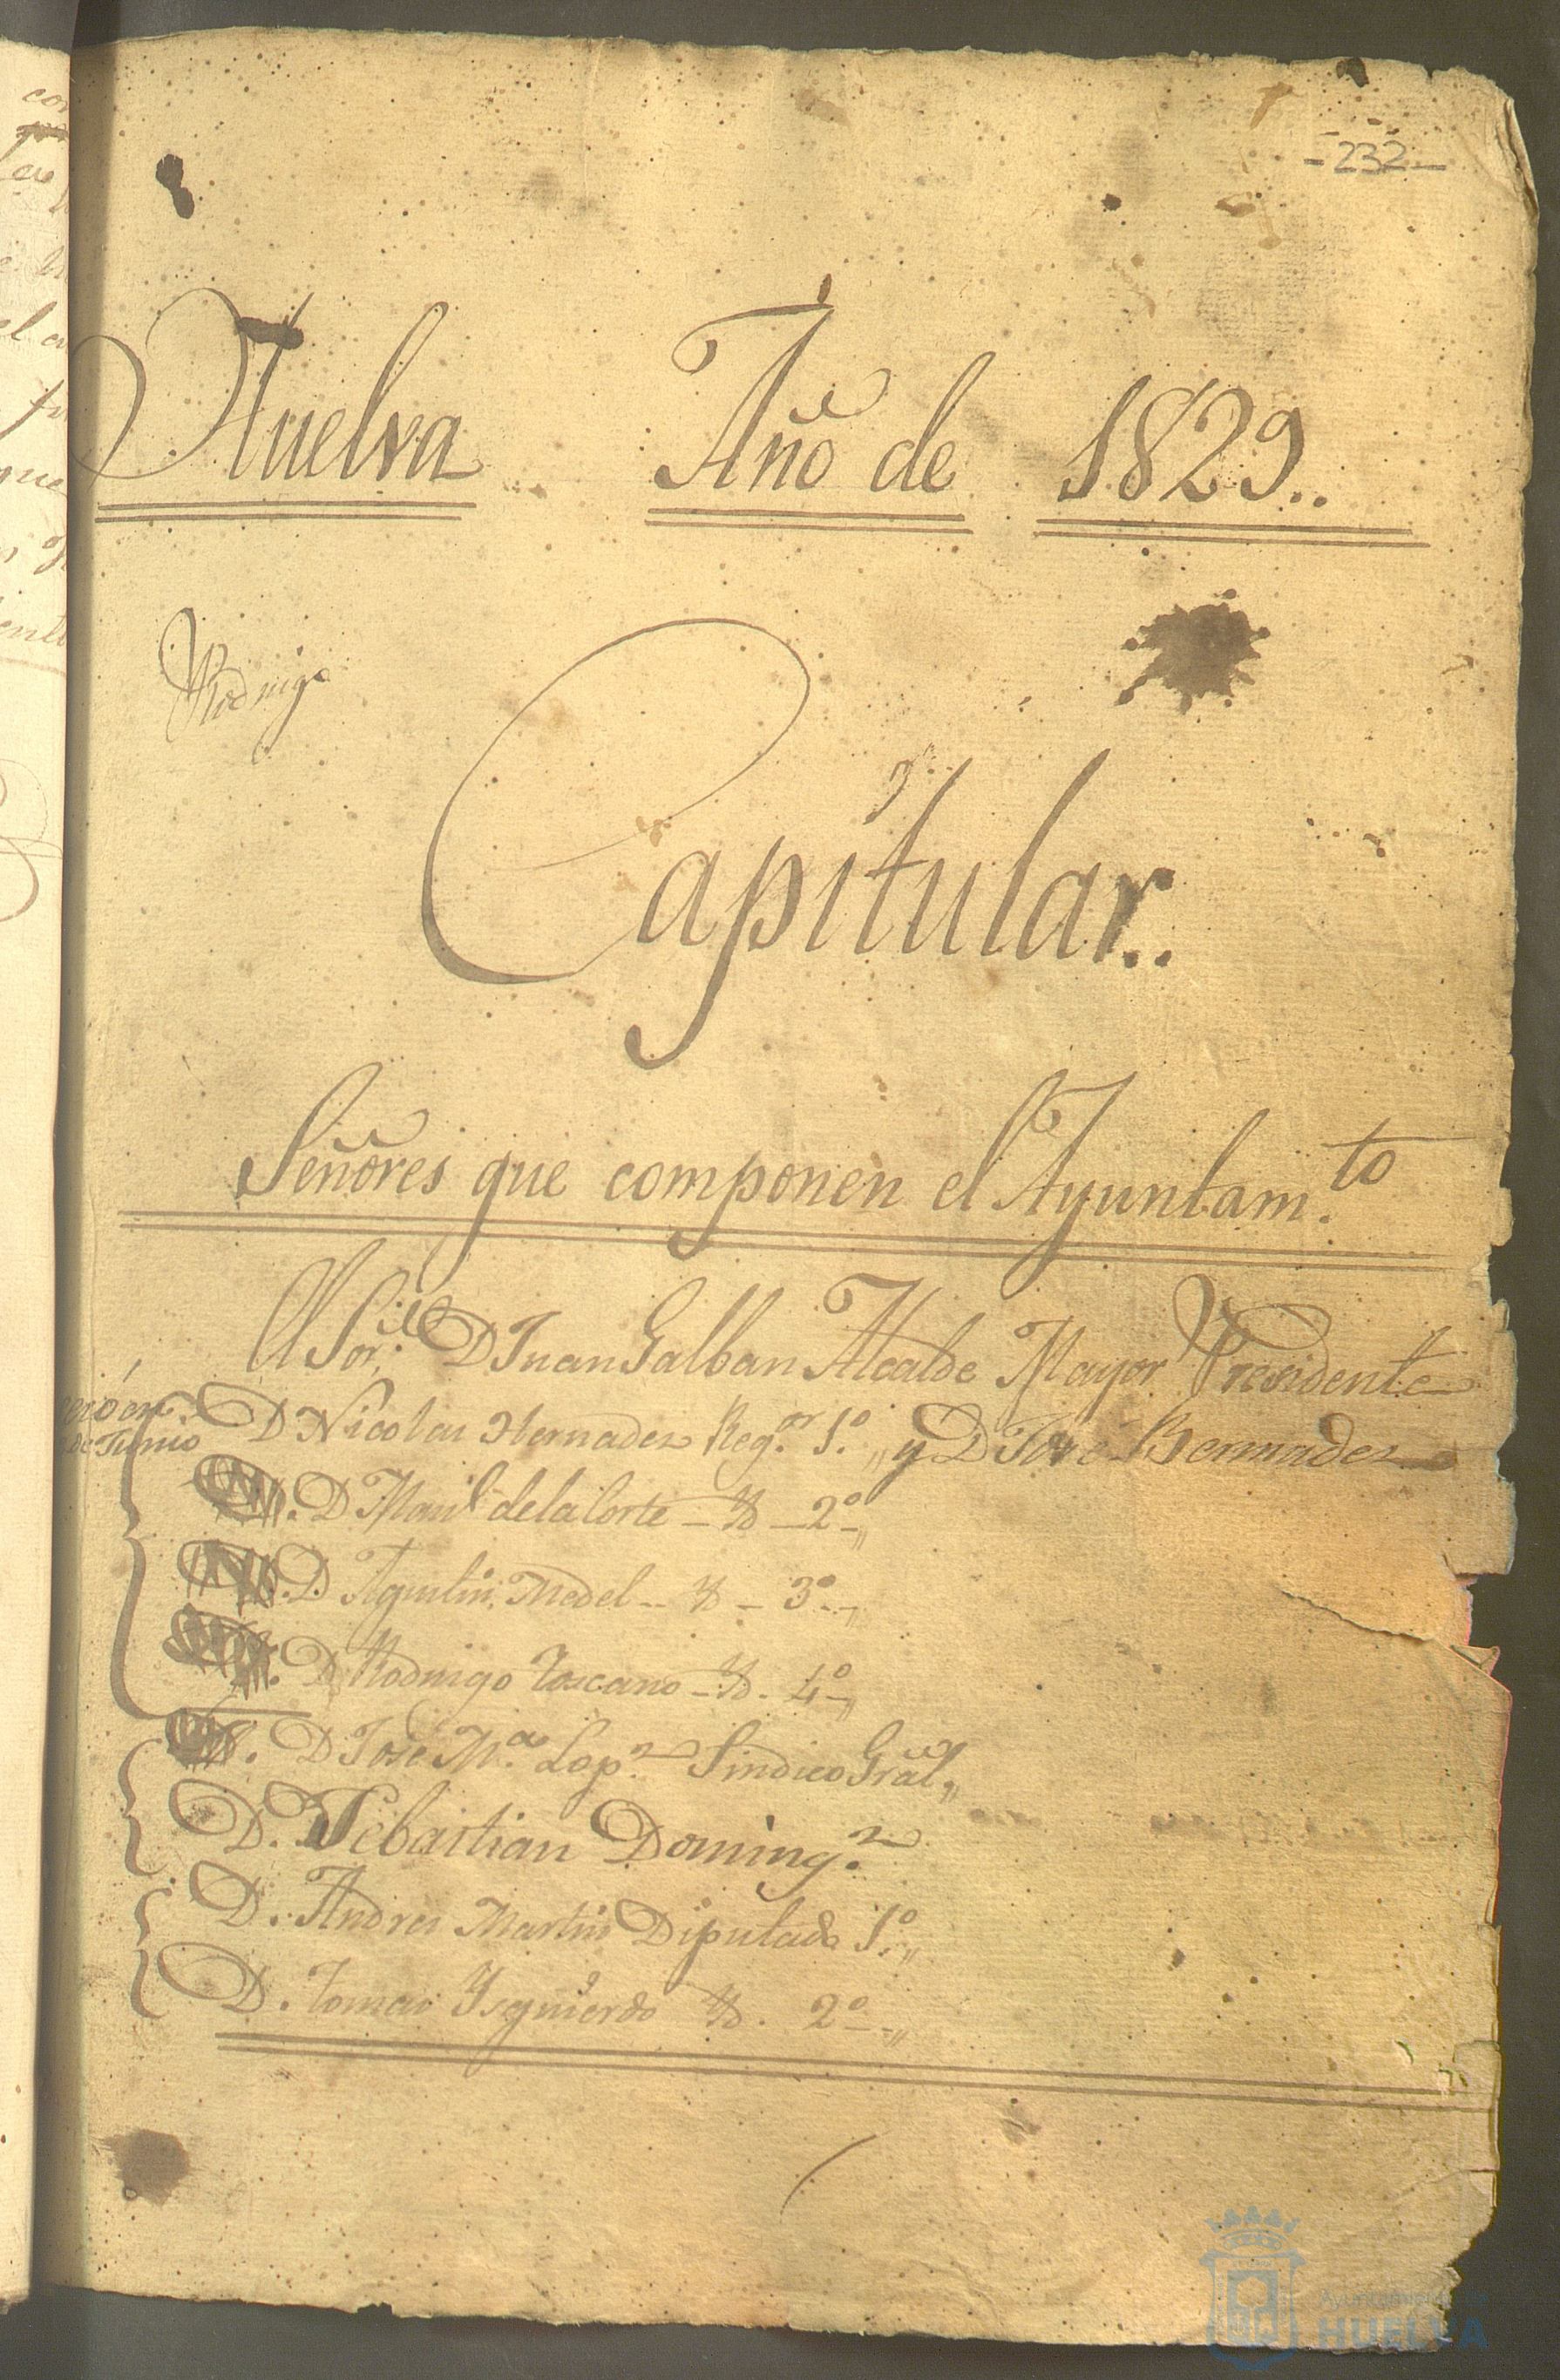 -232-
Huelva Año de 1829..
Rodrigo
Capitular..
Señores que componen el Ayuntam.to
El Sor. D Juan Galban Alcalde Mayor Presidente
D Nicolas Hernadez Reg.or 1.º „ y D Jose Bermudez
de Junio
D Man.l de la Corte - Yd - 2º - „
D. Agustin Medel - Yd - 3º - „
D Rodrigo Toscano - Yd. 4º - „
D Jose M.a Lop.z Sindico Gral „
D. Sebastian Doming.z
D. Andres Martin Diputado 1.º „
D. Tomas Ysquierdo Yd. 2º - „
Ayuntamiento de
HUELVA